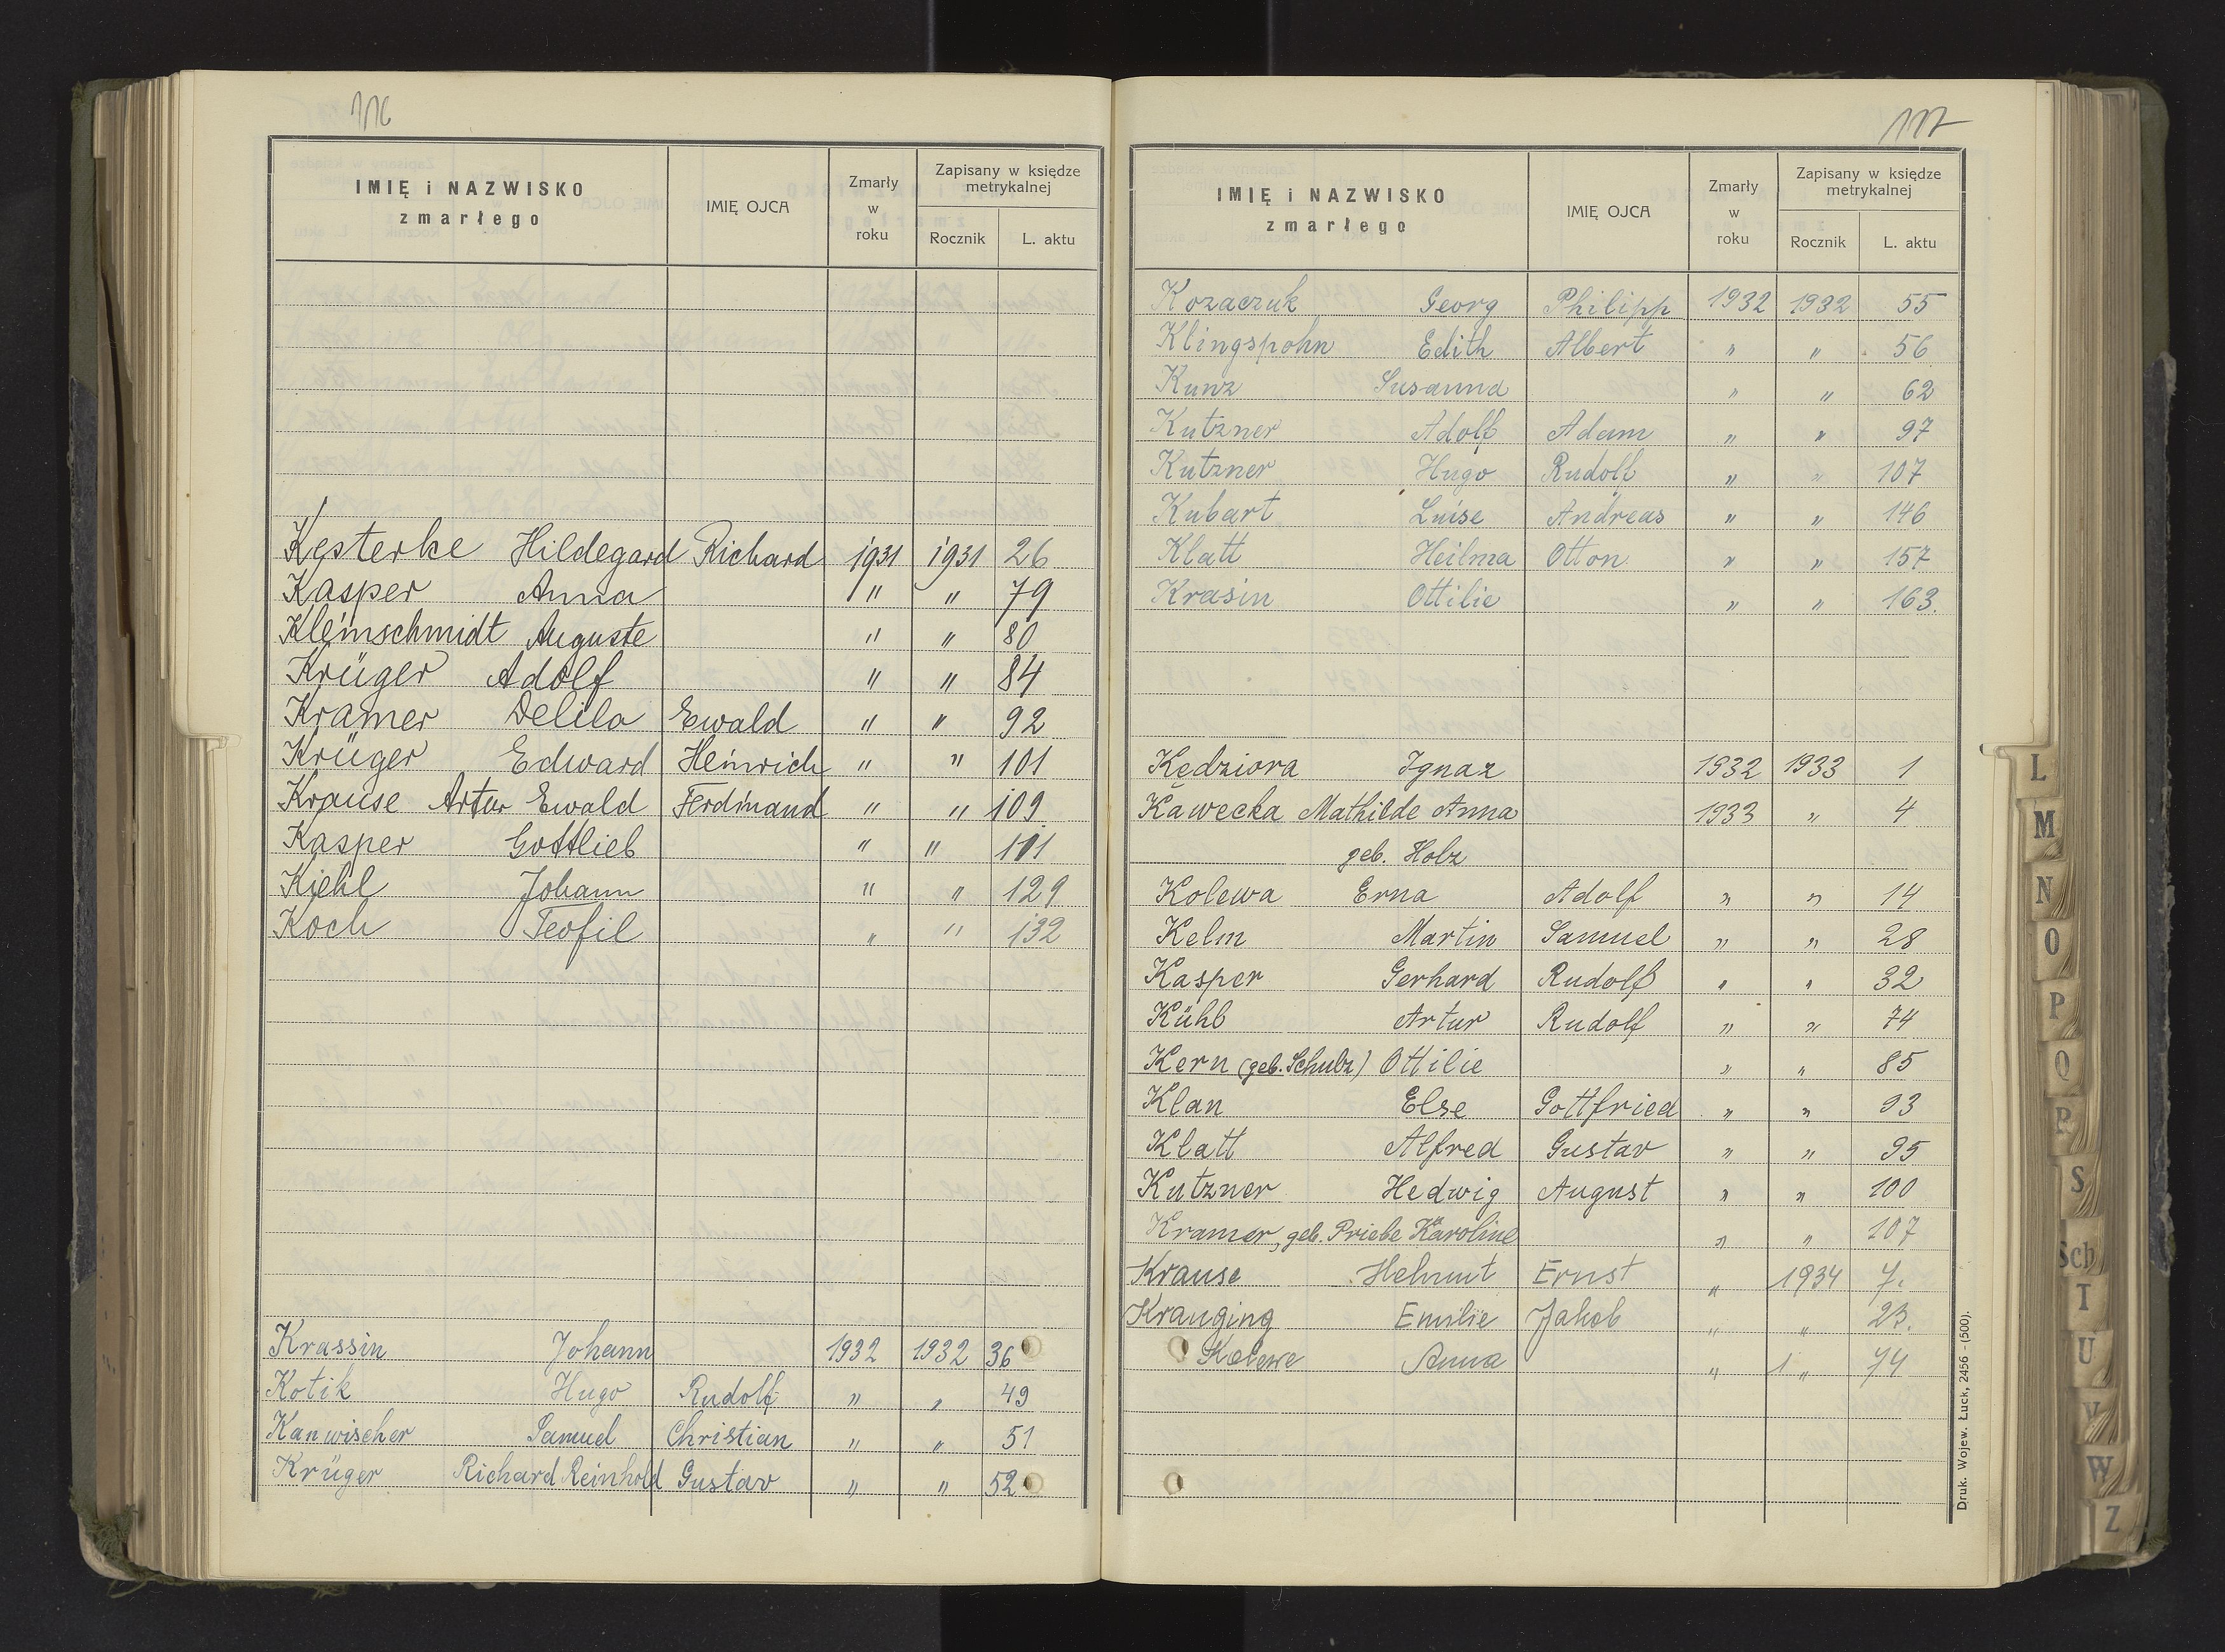 116
IMIĘ i NAZWISKO zmarłego IMIĘ OJCA Zmarły w roku Zapisany w księdze metrykalnej Rocznik L. aktu
Kęsterke Hildegard Richard 1931 1931 26
Kasper Anna " " 79
Kleinschmidt Auguste " " 80
Krüger Adolf " " 84
Kramer Delila Ewald " " 92
Krüger Edward Heinrich " " 101
Krause Artur Ewald Ferdinand " " 109
Kasper Gottlieb " " 111
Kiehl Johann " " 129
Koch Teofil " " 132
Krassin Johann 1932 1932 36
Kotik Hugo Rudolf " " 49
Kanwischer Samuel Christian " " 51
Krüger Richard Reinhold Gustav " " 52
117
IMIĘ i NAZWISKO zmarłego IMIĘ OJCA Zmarły w roku Zapisany w księdze metrykalnej Rocznik L. aktu
Kozaczuk Georg Philipp 1932 1932 55
Klingspohn Edith Albert " " 56
Kunz Susanna " " 62
Kutzner Adolf Adam " " 97
Kutzner Hugo Rudolf " " 107
Kubart Luise Andreas " " 146
Klatt Heilma Otton " " 157
Krasin Ottilie " " 163.
Kędziora Ignaz 1932 1933 1
Kawecka Mathilde Anna 1933 " 4
geb. Holz
Kolewa Erna Adolf " " 14
Kelm Martin Samuel " " 28
Kasper Gerhard Rudolf " " 32
Kühl Artur Rudolf " " 74
Kern (geb. Schulz) Ottilie " " 85
Klan Else Gottfried " " 93
Klatt Alfred Gustav " " 95
Kutzner Hedwig August " " 100
Kramer, geb. Priebe Karoline " " 107
Krause Helmut Ernst " 1934 7.
Krauging Emilie Jakob " " 23.
Kolewe Anna " " 74
Druk. Wojew. Łuck, 2456 - (500).
L
M
N
O
P
Q
R
S
Sch
T
U
V
W
Z